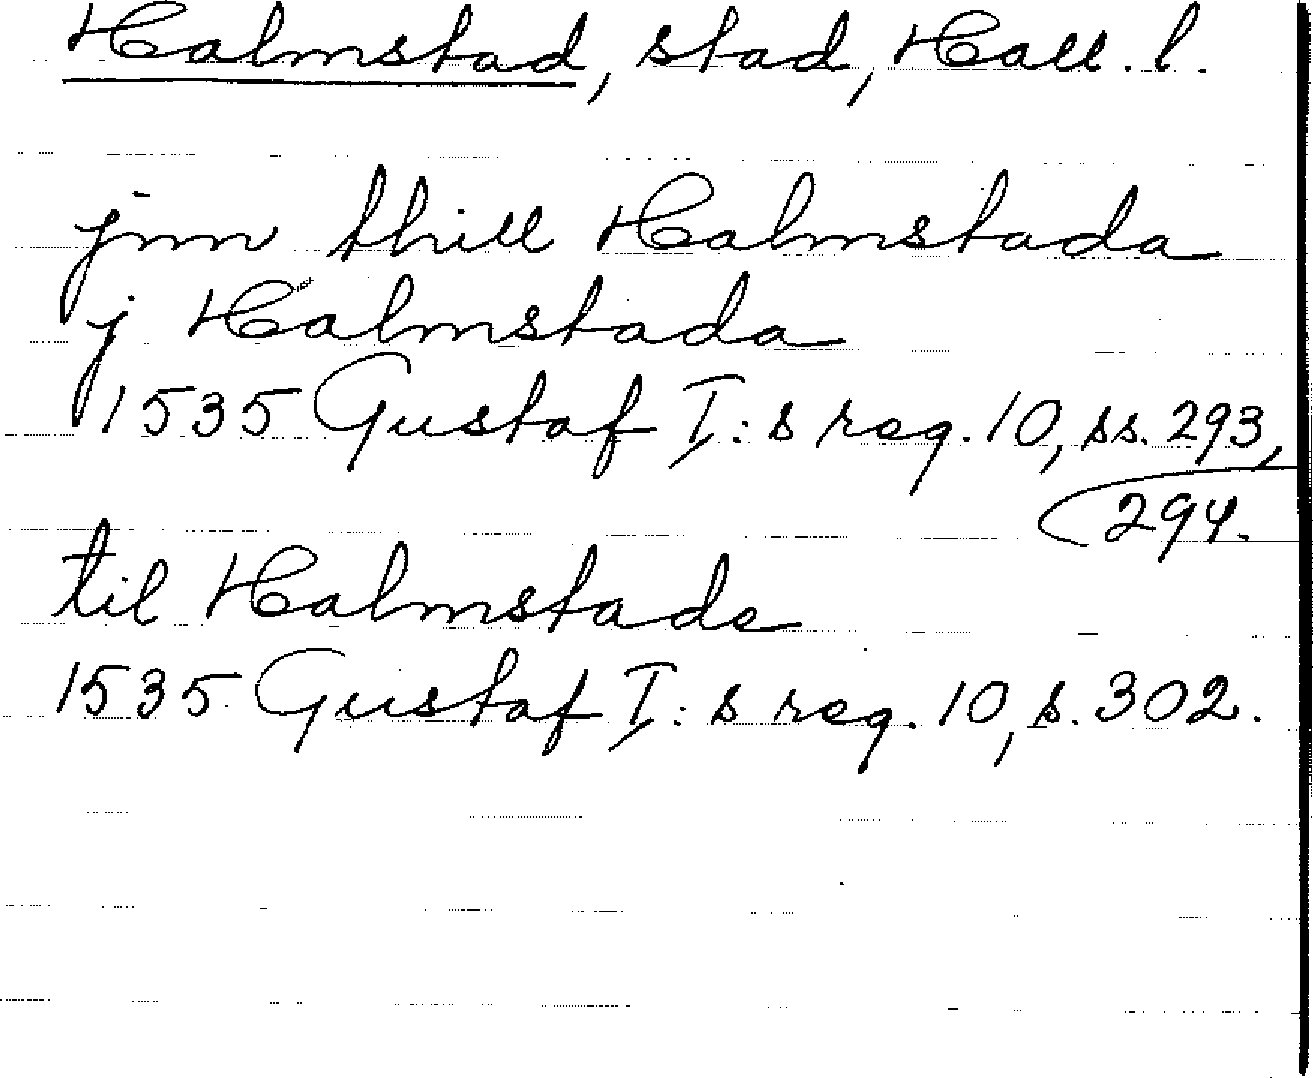 Halmstad, stad, Hall. l.
jnn thill Halmstada
j Halmstada
1535 Gustaf I:s reg. 10, ss. 293,
294.
til Halmstade
1535 Gustaf I:s reg. 10, s. 302.